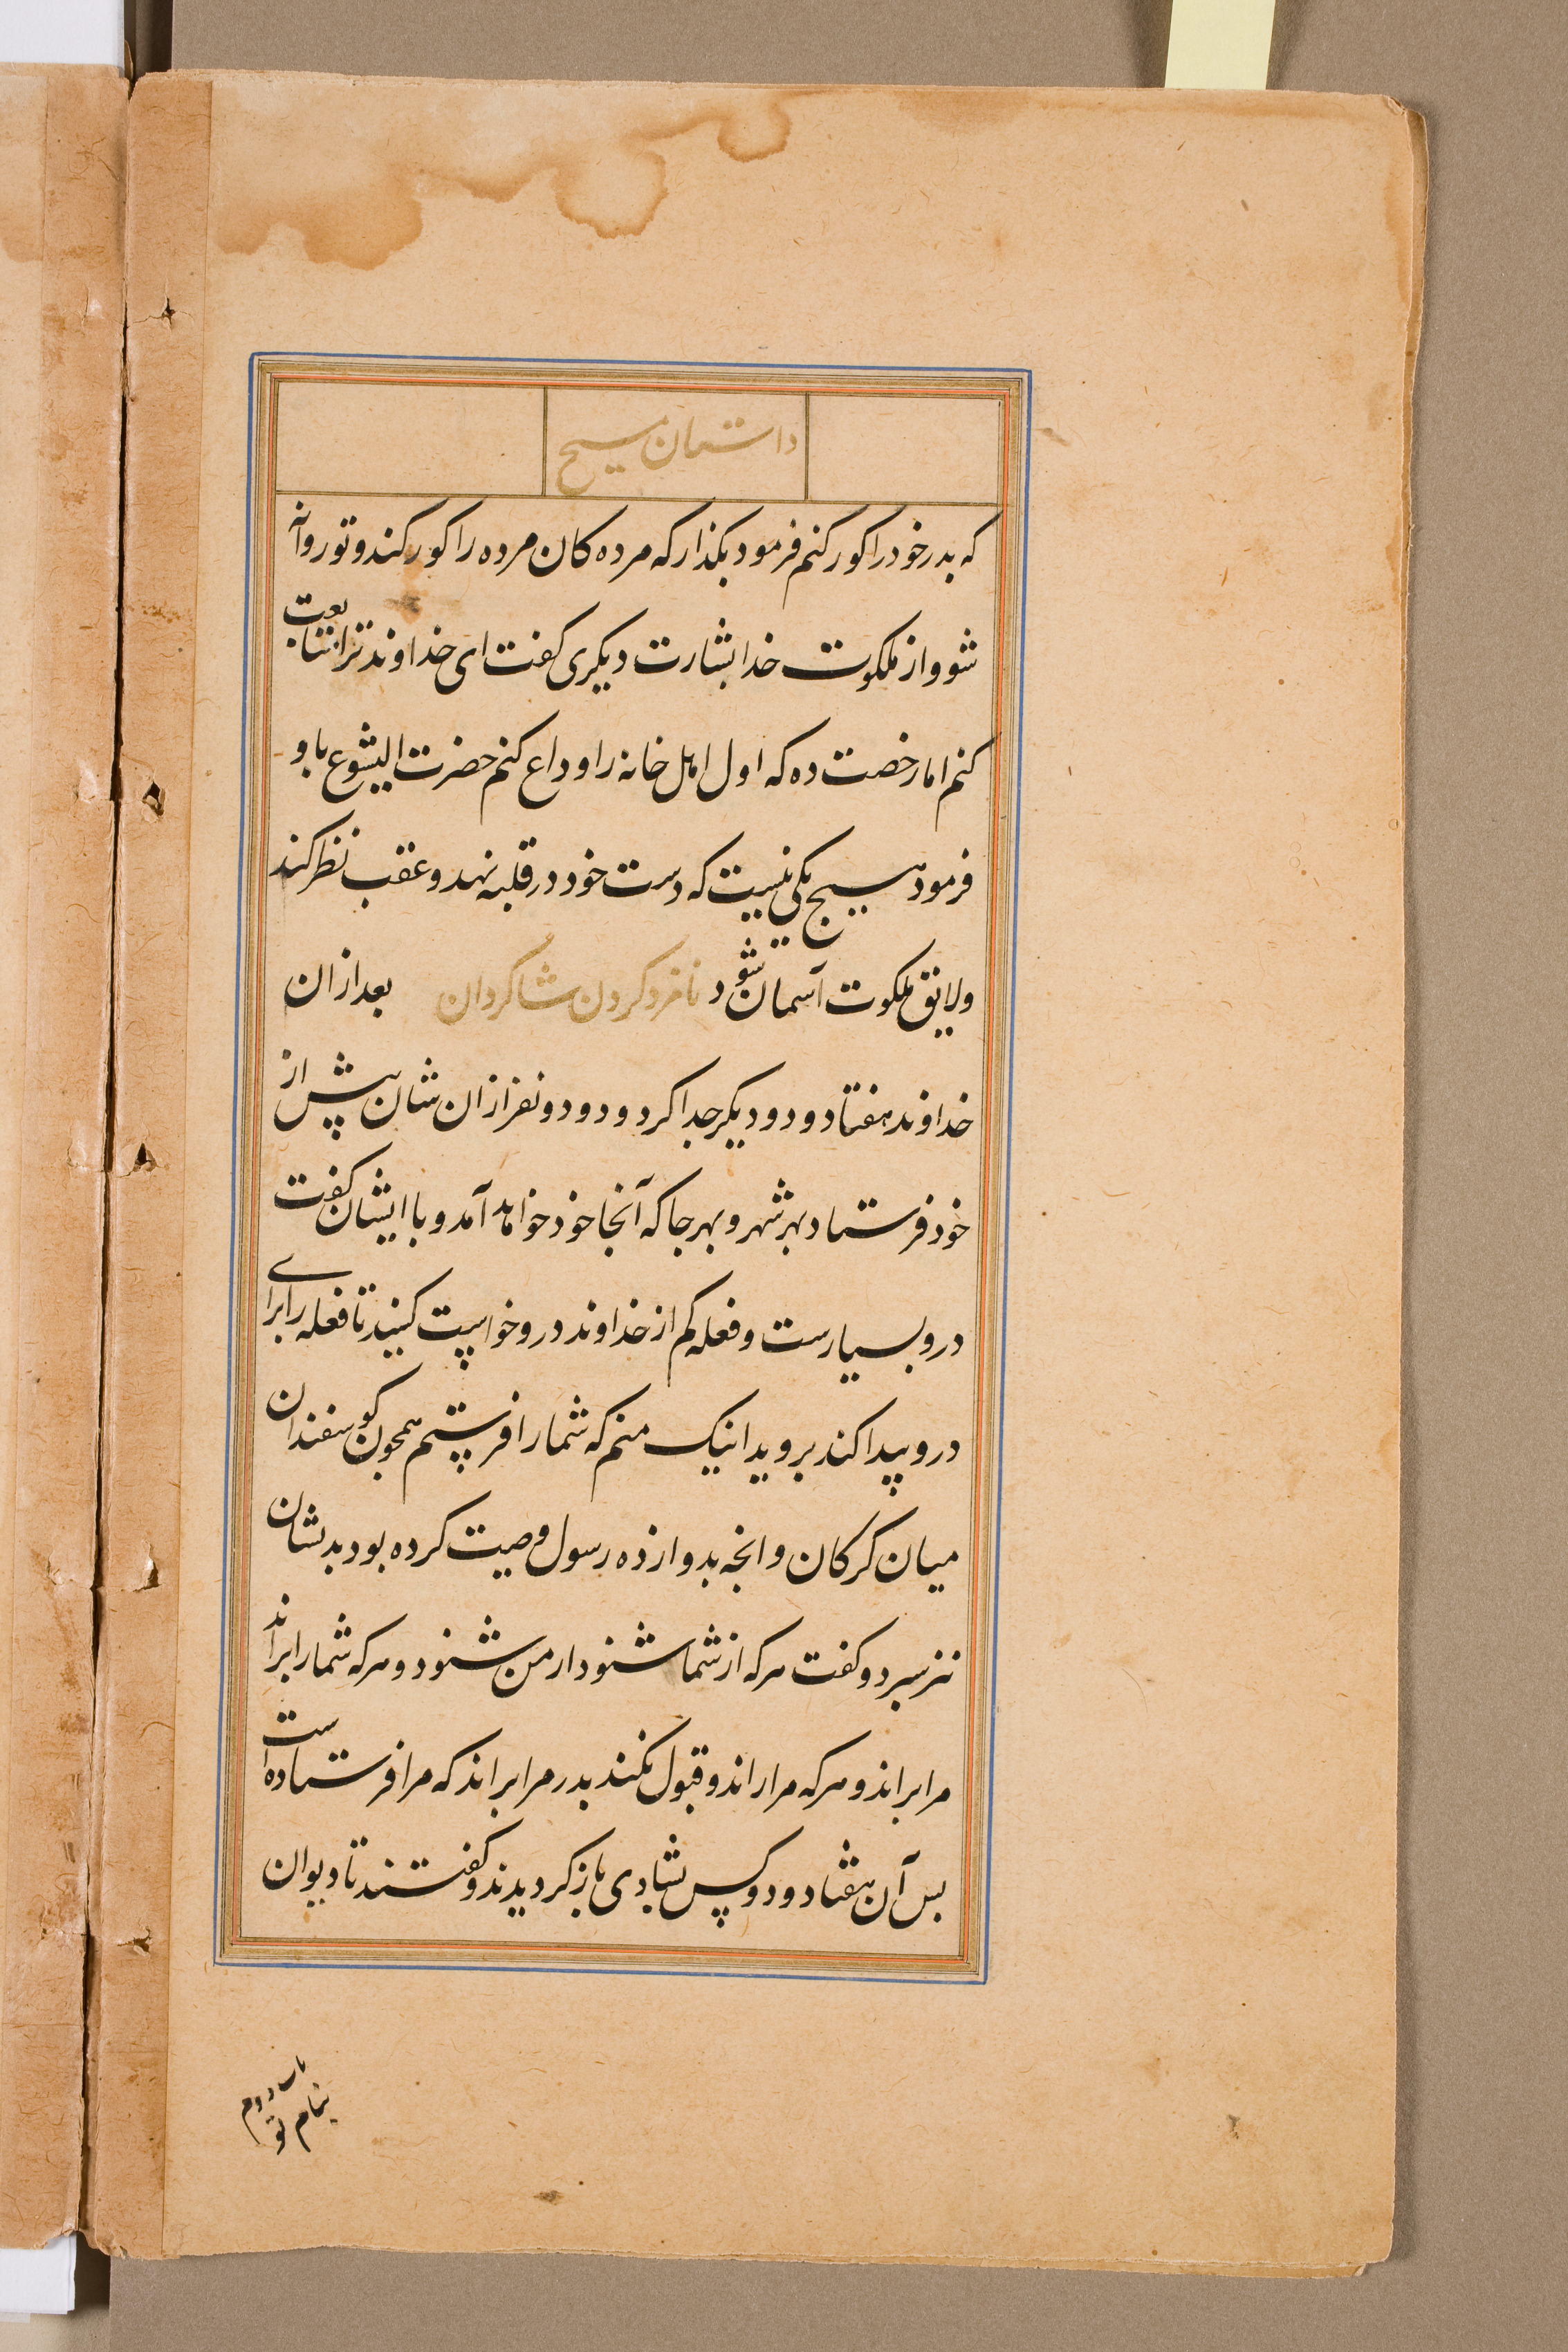 داستان مسیح
که بدر خود را کور کنم فرمود بکذار که مرده کان مرده را کور کنند و تو روانه
شو و از ملکوت خدا بشارت دیکری کفت ای خداوند ترا متابعت
کنم اما رخصت ده که اول اهل خانه را وداع کنم حضرت ایشوع باو
فرمود هیچ یکی نیست که دست خود در قلبه نهد و عقب نظر کند
و لایق ملکوت آسمان شود نامزد کردن شاکردان بعد ازان
خداوند هفتاد و دو دیکر جدا کرد و دو دو نفر ازان شان پیش از
خود فرستاد بهر شهر و بهر جا که آنجا خود خواهد آمد و با ایشان کفت
درو بسیارست و فعله کم از خداوند درو خواست کنید تا فعله را برای
درو پیدا کند بروید اینک منم که شما را فرستم همچون کوسفندان
میان کرکان و انچه بدوازده رسول وصیت کرده بود بدیشان
نیز سبرد و کفت هرکه از شما شنود از من شنود و هرکه شما را براند
مرا براند و هرکه مرا راند و قبول نکند بدر مرا براند که مرا فرستاده است
بس آن هفتاد و دو کس بشادی باز کردیدند و کفتند تا دیوان
بنام تو